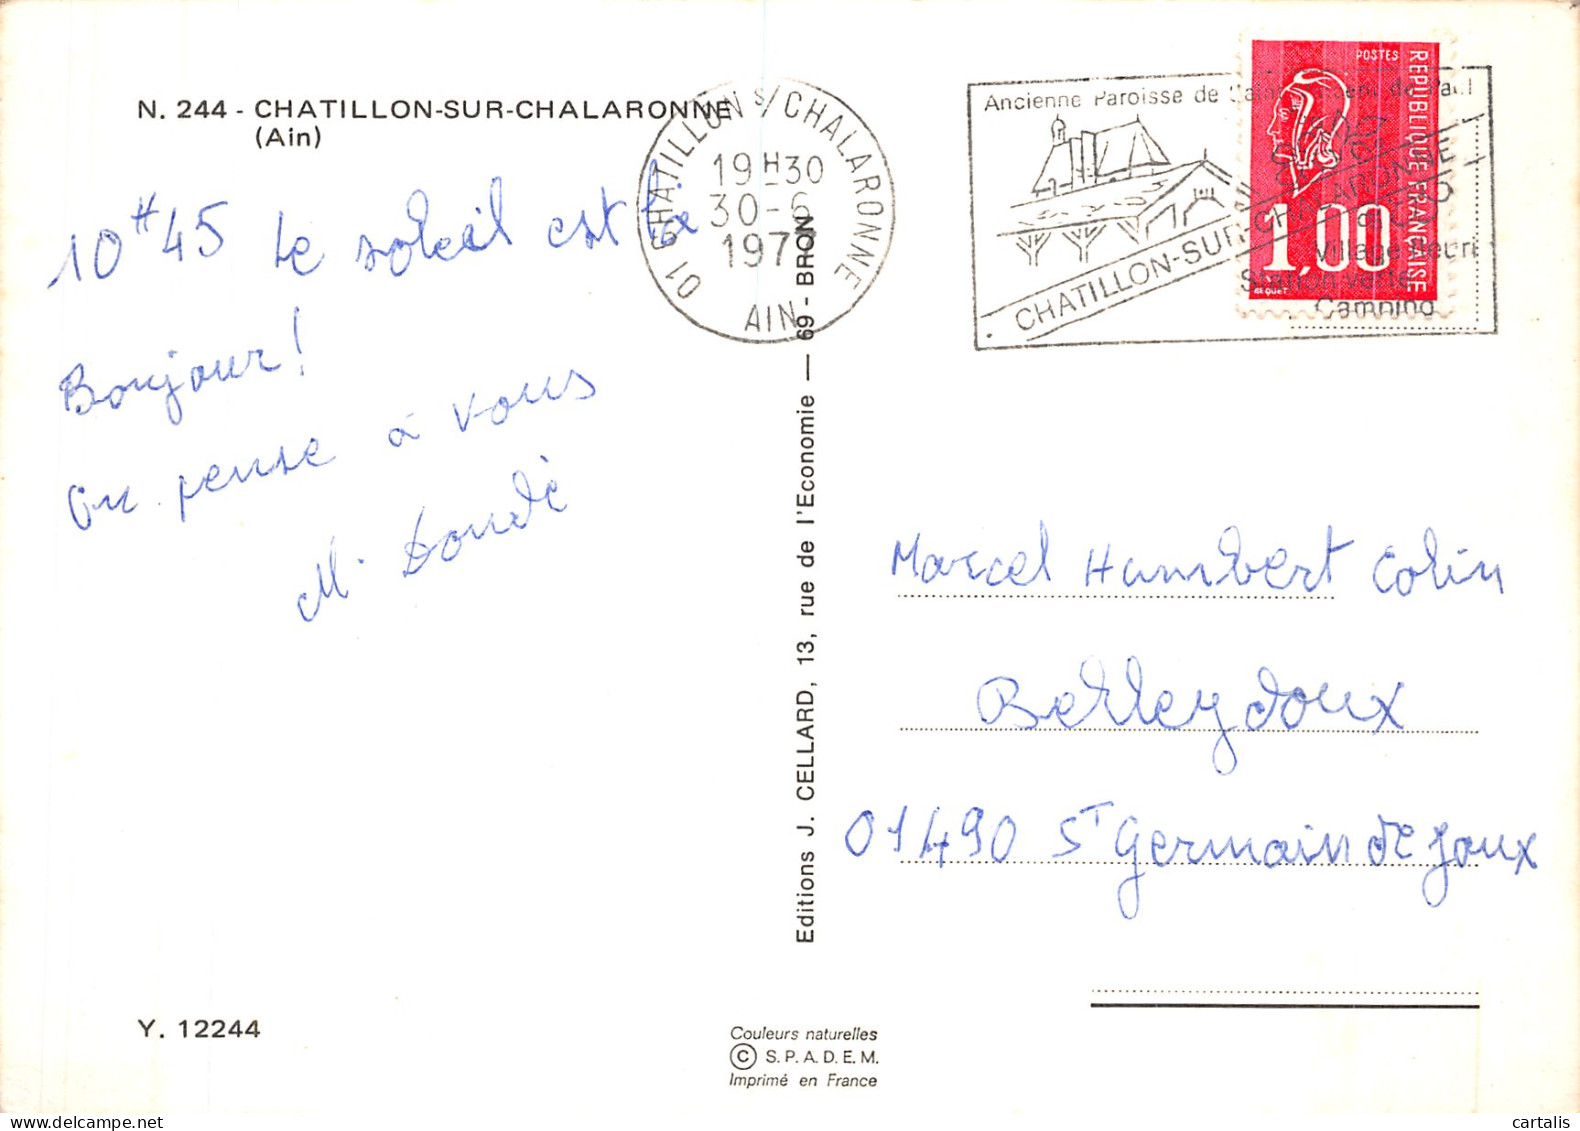 N. 244 - CHATILLON-SUR-CHALARONNE
(Ain)
10H45 Le soleil est là
Bonjour!
On pense à vous
M.
01 CHATILLON S/CHALARONNE
19H30
30-6
1977
AIN
Ancienne Paroisse de Saint Vincent de Paul
CHATILLON-SUR-CHALARONNE
Village fleuri
Station verte
Camping
POSTES
REPUBLIQUE FRANÇAISE
1,00
BEQUET
Editions J. CELLARD, 13, rue de l'Economie — 69 - BRON
Marcel Humbert Colin
Belleydoux
01490 ST Germain de Joux
Y. 12244
Couleurs naturelles
© S.P.A.D.E.M.
Imprimé en France
cartalis